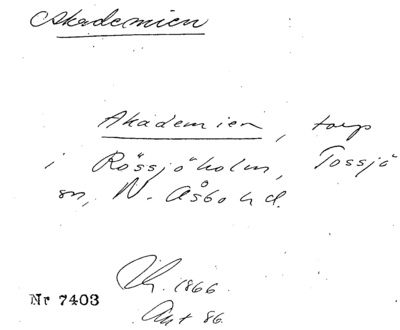 Akademien
Akademien, torp
i Rössjöholm, Tossjö
sn, N. Åsbo hd.
1866
Nr 7403
Ant 86.